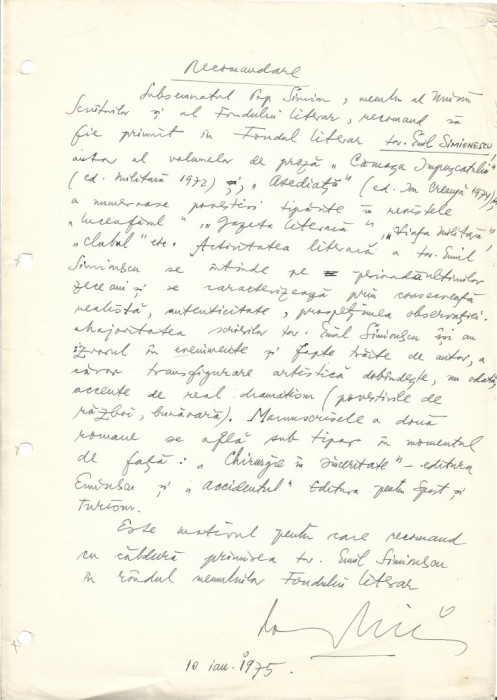 Recomandare
Subsemnatul Pop Simion, membru al Uniunii
Scriitorilor și al Fondului literar, recomand să
fie primit în Fondul literar tov. Emil SIMIONESCU
autor al volumelor de proză „Cămașa împușcatului"
(ed. Militară 1972) și, „Asediații" (ed. Ion Creangă 1974)
a numeroase povestiri tipărite în revistele
„Luceafărul" „Gazeta literară", „Viața militară",
„Clubul" etc. Activitatea literară a tov. Emil
Simionescu se întinde pe perioada ultimilor
zece ani și se caracterizează prin consecvență
realistă, autenticitate, prospețimea observației.
Majoritatea scrierilor tov. Emil Simionescu își au
izvorul în evenimente și fapte trăite de autor, a
căror transfigurare artistică dobîndește, nu odată,
accente de real dramatism (povestirile de
război, bunăoară). Manuscrisele a două
romane se află sub tipar în momentul
de față: „Chirurgie în sinceritate" - editura
Eminescu și „Accidentul" Editura pentru Sport și
Turism.
Este motivul pentru care recomand
cu căldură primirea tov. Emil Simionescu
în rîndul membrilor Fondului literar
10 ian. 1975.